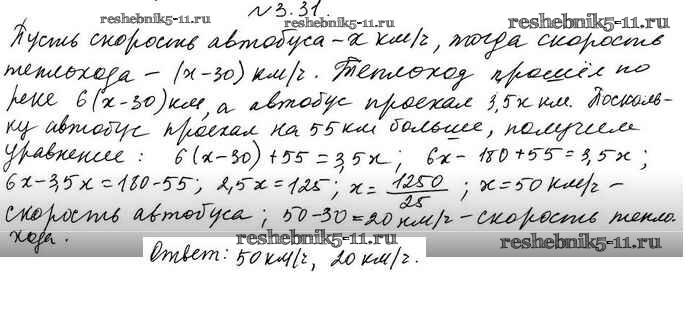 №3.31.
reshebnik5-11.ru reshebnik5-11.ru
Пусть скорость автобуса – x км/ч, тогда скорость
теплохода – (x-30) км/ч. Теплоход прошёл по
реке 6(x-30) км, а автобус проехал 3,5x км. Посколь-
ку автобус проехал на 55 км больше, получим
уравнение: 6(x-30)+55=3,5x; 6x-180+55=3,5x;
6x-3,5x=180-55; 2,5x=125; x=1250/25; x=50 км/ч –
скорость автобуса; 50-30=20 км/ч – скорость тепло-
хода.
reshebnik5-11.ru reshebnik5-11.ru
Ответ: 50 км/ч, 20 км/ч.